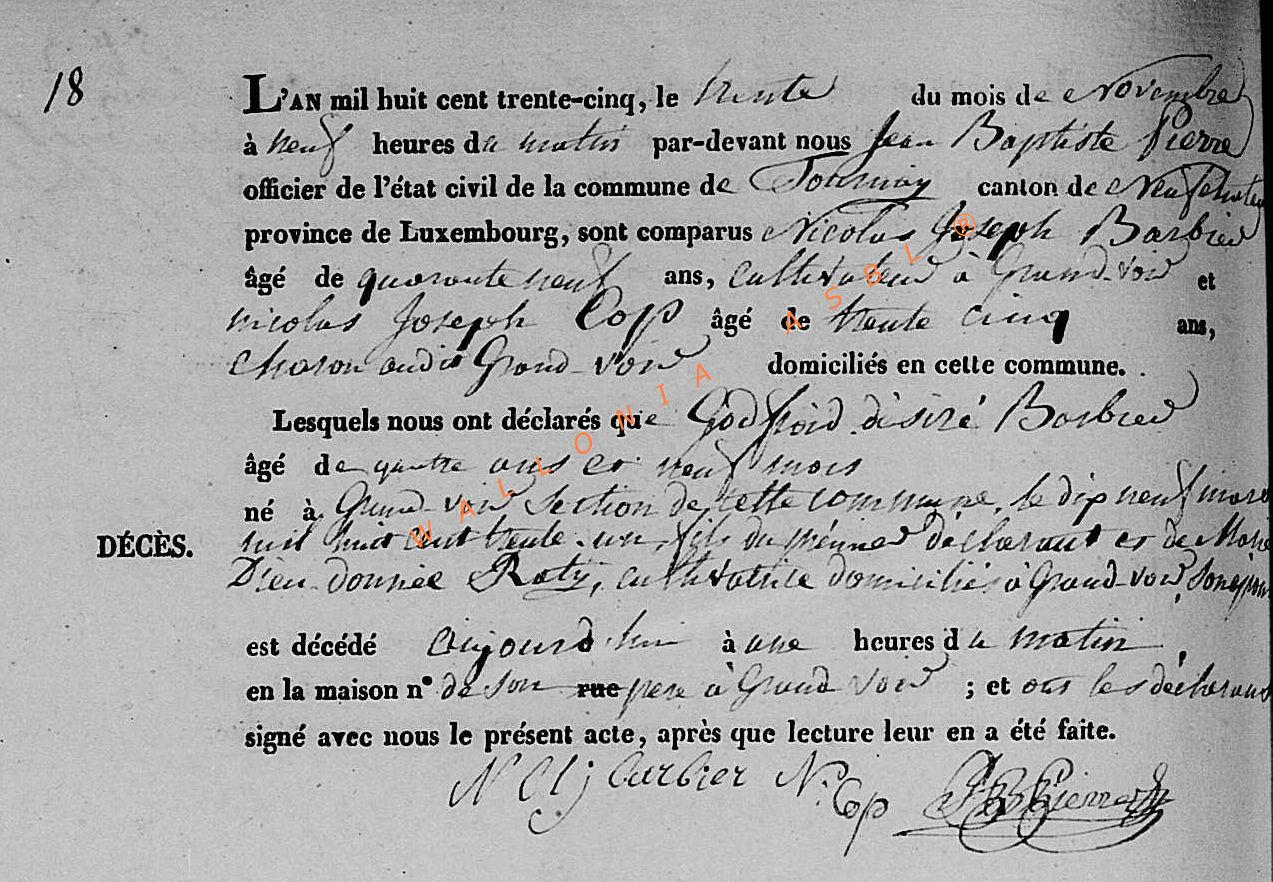 18
L'AN mil huit cent trente-cinq, le trente du mois de Novembre
à neuf heures du matin par-devant nous Jean Baptiste Pierre
officier de l'état civil de la commune de Tournay canton de Neufchateau
province de Luxembourg, sont comparus Nicolas Joseph Barbier
âgé de quarante neuf ans, cultivateur à Grand-voir et
nicolas Joseph Cop âgé de trente cinq ans,
charon audit Grand-voir domiciliés en cette commune.
Lesquels nous ont déclarés que Godfroid désiré Barbier
âgé de quatre ans et neuf mois
né à Grand-voir section de cette commune, le dix neuf mars
DÉCÈS.
mil huit cent trente-un, fils du prémier déclarant et de Marie
Dieu-donnée Roty, cultivatrice domiciliés à Grand-voir,
est décédé aujourd'hui à une heures du matin,
en la maison n° de son rue pere à Grand voir ; et ont les déclarans
signé avec nous le présent acte, après que lecture leur en a été faite.
N Cl j barbier N: Cop JB Pierre
WALLONIA ASBL ®